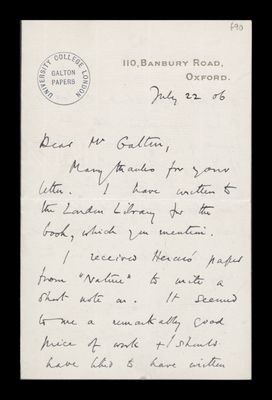 690
UNIVERSITY COLLEGE LONDON
GALTON
PAPERS
110, BANBURY ROAD,
OXFORD.
July 22 06
Dear Mr Galton,
Many thanks for your
letter. I have written to
the London Library for the
book, which you mention.
I received Herons' paper
from "Nature" to write a
short note on. It seemed
to me a remarkably good
piece of work + I should
have liked to have written